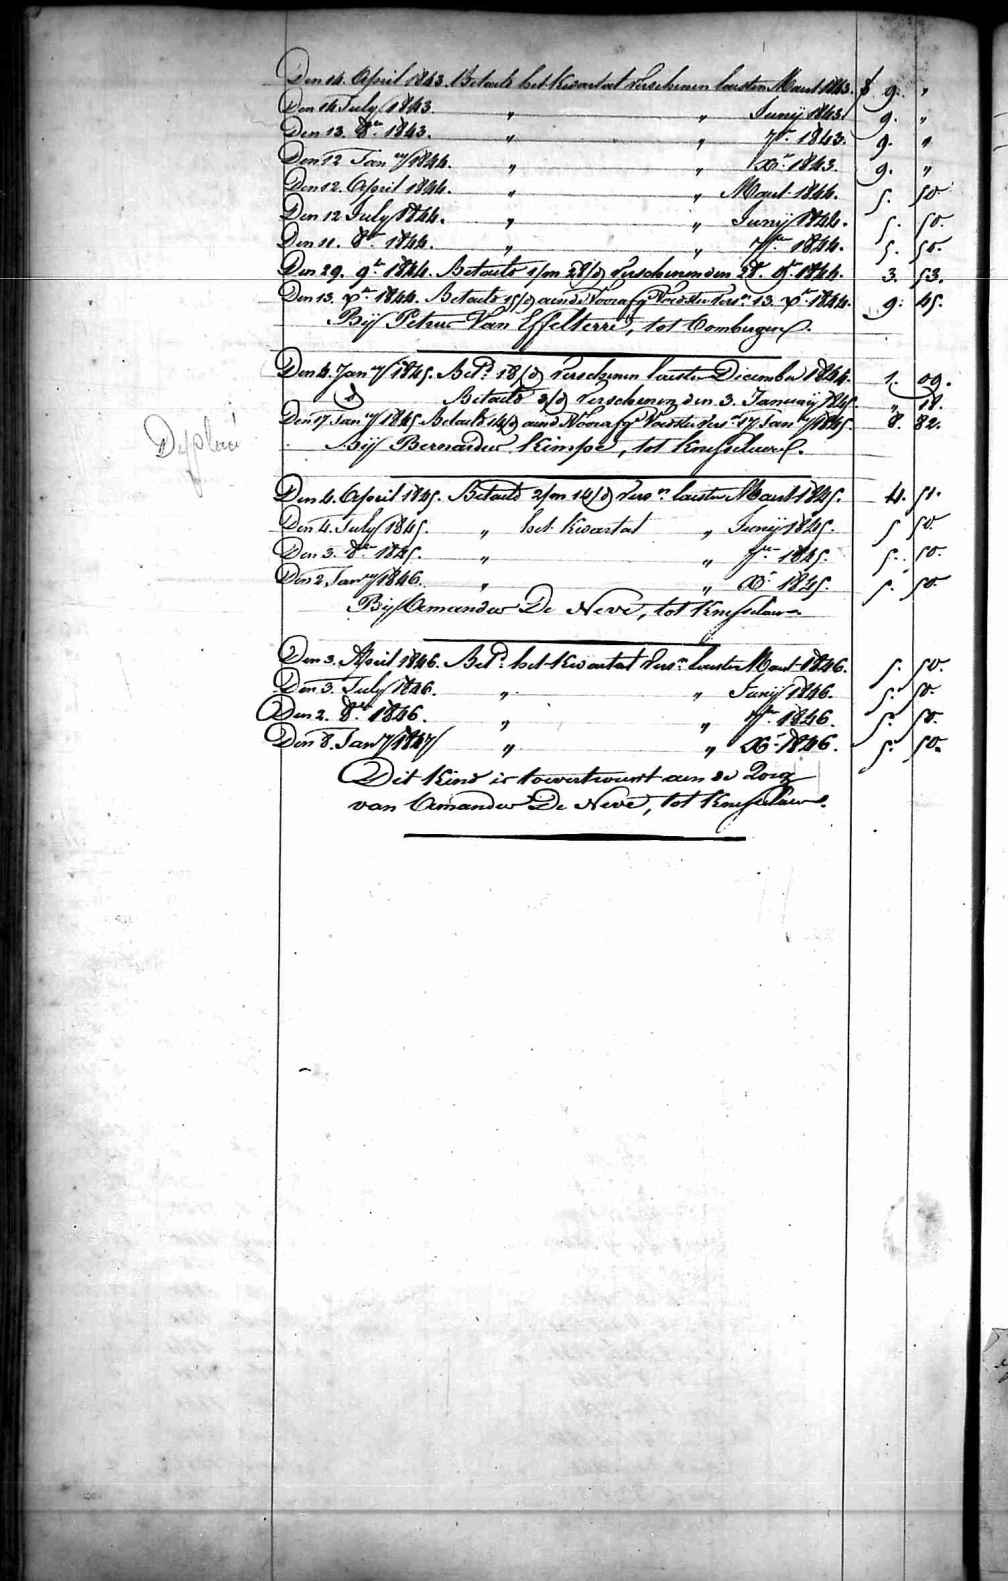 Den 14. April 1843. Betaelt het kwartael verschenen laesten Maert 1843. f 9. "
Den 14 July 1843. " " Junij 1843. 9. "
Den 13. 8er 1843. " " 7er 1843. 9. "
Den 12 Janry 1844. " " Xr 1843. 9. "
Den 12. April 1844. " " Maert 1844. 5. 50.
Den 12 July 1844. " " Junij 1844. 5. 50.
Den 11. 8er 1844. " " 7er 1844. 5. 50.
Den 29. 9r 1844. Betaeld 1/m 28/d verschenen den 28. 9r 1844. 3. 53.
Den 13. Xr 1844. Betaeld 15/d aen de Voorafg Voedster vers. 13. Xr 1844. 9. 45.
Bij Petrus Van Effelterre, tot
Den 4. Janry 1845. Betd 18/d verschenen laesten December 1844. 1. 09.
Betaeld 3/d verschenen den 3. January 1845. " 18.
Den 17 Janry 1845 Betaeld 14/d aen de Voorafg Voedster vers. 17 Janry 1845. 8. 82.
Deplacé
Bij Bernardus Kimpe, tot Knesselaere.
Den 4. April 1845. Betaeld 2/m 14/d versn laesten Maert 1845. 4. 51.
Den 4. July 1845. " het kwartael " Junij 1845. 5 50.
Den 3. 8er 1845. " " 7er 1845. 5. 50.
Den 2. Janry 1846. " " Xr 1845. 5. 50.
Bij Amandus De Neve, tot Knesselaere
Den 3. April 1846. Betd het kwartael versn laesten Maert 1846. 5. 50.
Den 3. July 1846. " " Junij 1846. 5. 50.
Den 2. 8er 1846. " " 7er 1846. 5. 50.
Den 8. Janry 1847 " " Xr 1846. 5. 50.
Dit kind is toevertrouwt aen de Zorg
van Amandus De Neve, tot Knesselaere.